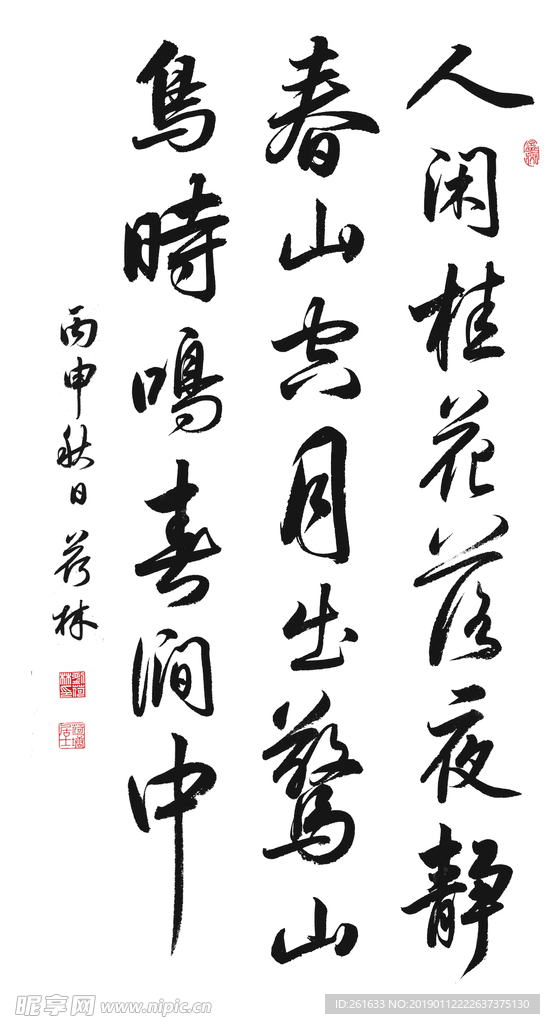 人闲桂花落夜静
春山空月出驚山
鳥時鳴春澗中
丙申秋日荷林
昵享网 www.nipic.cn
ID:261633 NO:20190112222637375130